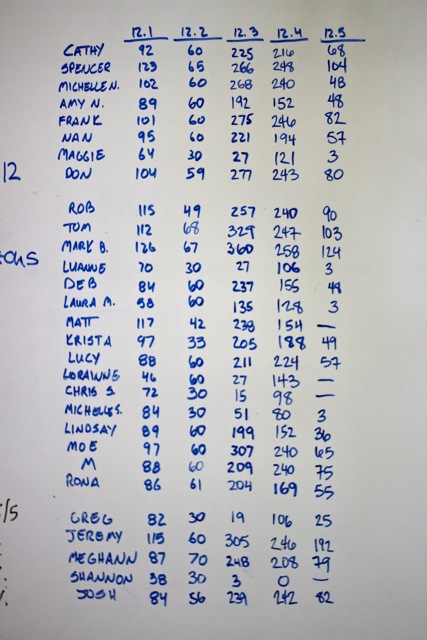 12.1 12.2 12.3 12.4 12.5
CATHY 92 60 225 216 68
SPENCER 123 65 266 248 104
MICHELLE N. 102 60 268 240 48
AMY N. 89 60 192 152 48
FRANK 101 60 275 246 82
NAN 95 60 221 194 57
MAGGIE 64 30 27 121 3
12 DON 104 59 277 243 80
ROB 115 49 257 240 90
TOM 112 68 329 247 103
MARK B. 126 67 360 258 124
LUANNE 70 30 27 106 3
DEB 84 60 237 155 48
LAURA M. 58 60 135 128 3
MATT 117 42 238 154 —
KRISTA 97 33 205 188 49
LUCY 88 60 211 224 57
LORAINNE 46 60 27 143 —
CHRIS S. 72 30 15 98 —
MICHELLE S. 84 30 51 80 3
LINDSAY 89 60 199 152 36
MOE 97 60 307 240 65
M 88 60 209 240 75
RONA 86 61 204 169 55
GREG 82 30 19 106 25
JEREMY 115 60 305 246 192
MEGHANN 87 70 248 208 79
SHANNON 38 30 3 0 —
JOSH 84 56 239 242 82